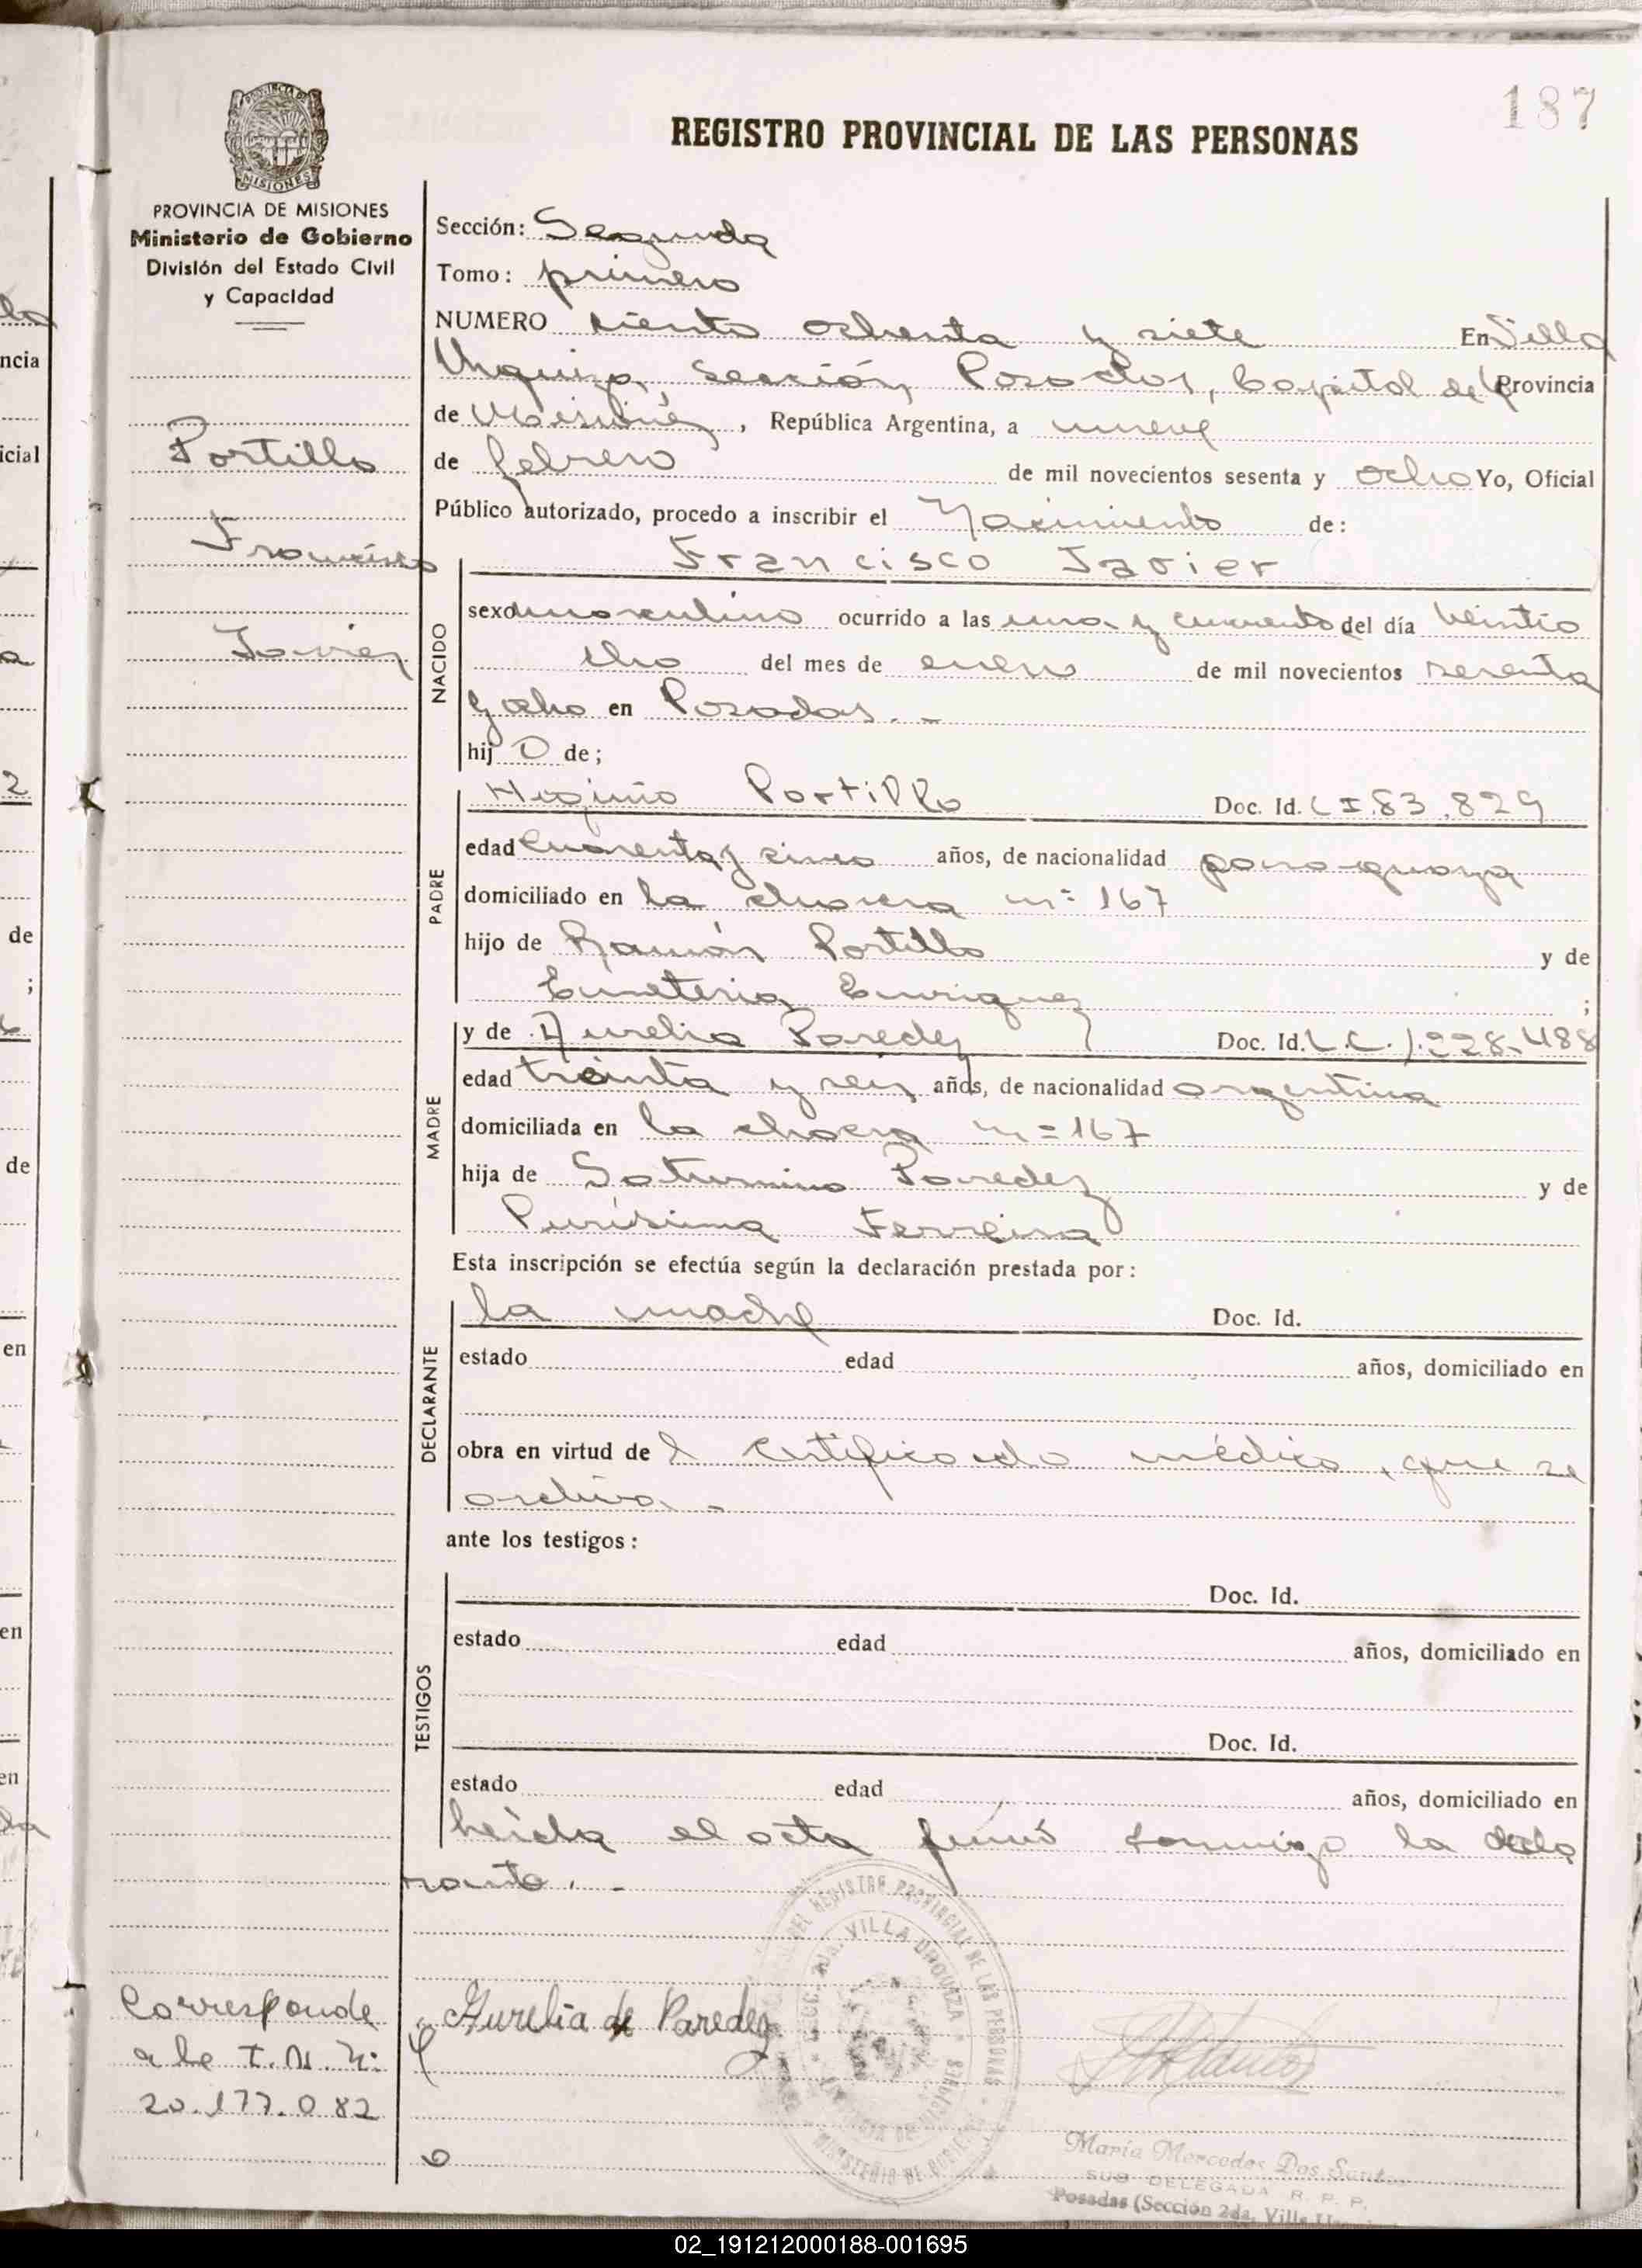 187
REGISTRO PROVINCIAL DE LAS PERSONAS
PROVINCIA DE MISIONES
Ministerio de Gobierno
División del Estado Civil
y Capacidad
Portillo
Francisco
Javier
Sección: Segunda
Tomo: primero
NUMERO ciento ochenta y siete En Villa
Urquiza, Sección Posadas, Capital de la Provincia
de Misiones, República Argentina, a nueve
de febrero de mil novecientos sesenta y ocho Yo, Oficial
Público autorizado, procedo a inscribir el Nacimiento de:
Francisco Javier
NACIDO
sexo masculino ocurrido a las una y cuarenta del día veintio
cho del mes de enero de mil novecientos sesenta
y ocho en Posadas.-
hij o de;
PADRE
Higinio Portillo Doc. Id. C I. 83.829
edad cuarenta y cinco años, de nacionalidad paraguaya
domiciliado en la chacra n= 167
hijo de Ramón Portillo y de
Emeteria Enriquez ;
MADRE
y de Aurelia Paredez Doc. Id. L.C. 1.228.488
edad treinta y seis años, de nacionalidad argentina
domiciliada en la chacra n=167
hija de Saturnino Paredez y de
Purísima Ferreira
Esta inscripción se efectúa según la declaración prestada por:
DECLARANTE
la madre Doc. Id.
estado edad años, domiciliado en
obra en virtud de l certificado médico, que se
archiva.-
ante los testigos:
TESTIGOS
Doc. Id.
estado edad años, domiciliado en
Doc. Id.
estado edad años, domiciliado en
leída el acta firmó conmigo la decla
rante.-
Corresponde
a la I. N. N:
20.177.082
Aurelia de Paredez
VILLA URQUIZA
María Mercedes Dos Sant
SUB DELEGADA R. P. P.
Posadas (Sección 2da. Villa
02_191212000188-001695